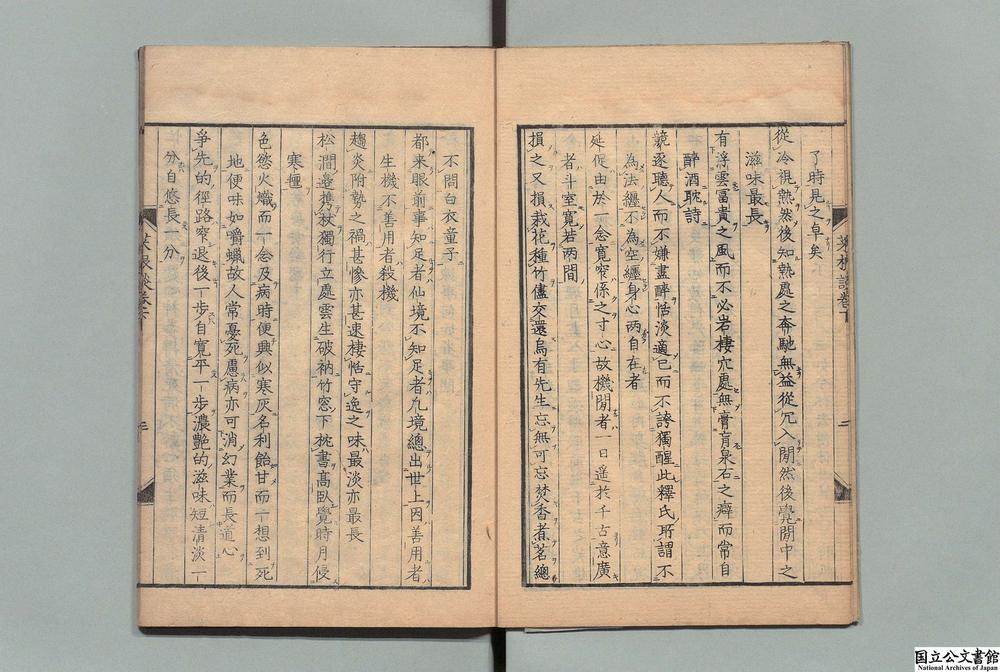 了時見之卓矣
從冷視熱然後知熱處之奔馳無益從冗入閒然後覺閒中之
滋味最長
有浮雲冨貴之風而不必岩棲穴處無膏肓泉石之癖而常自
醉酒耽詩
競逐聽人而不嫌盡醉恬淡適己而不誇獨醒此釋氏所謂不
為法纏不為空纏身心兩自在者
延促由於一念寛窄係之寸心故機閒者一日遥於千古意廣
者斗室寛若兩間
損之又損栽花種竹儘交還烏有先生忘無可忘焚香煮茗總
菜根談卷下
二
不問白衣童子
都来眼前事知足者仙境不知足者凡境總出世上因善用者
生機不善用者殺機
趨炎附勢之禍甚慘亦甚速棲恬守逸之味最淡亦最長
松澗邉携杖獨行立處雲生破衲竹窓下枕書高臥覺時月侵
寒氊
色慾火熾而一念及病時便興似寒灰名利飴甘而一想到死
地便味如嚼蠟故人常憂死慮病亦可消幻業而長道心
爭先的徑路窄退後一步自寛平一步濃艷的滋味短清淡一
分自悠長一分
菜根談卷下
国立公文書館
National Archives of Japan